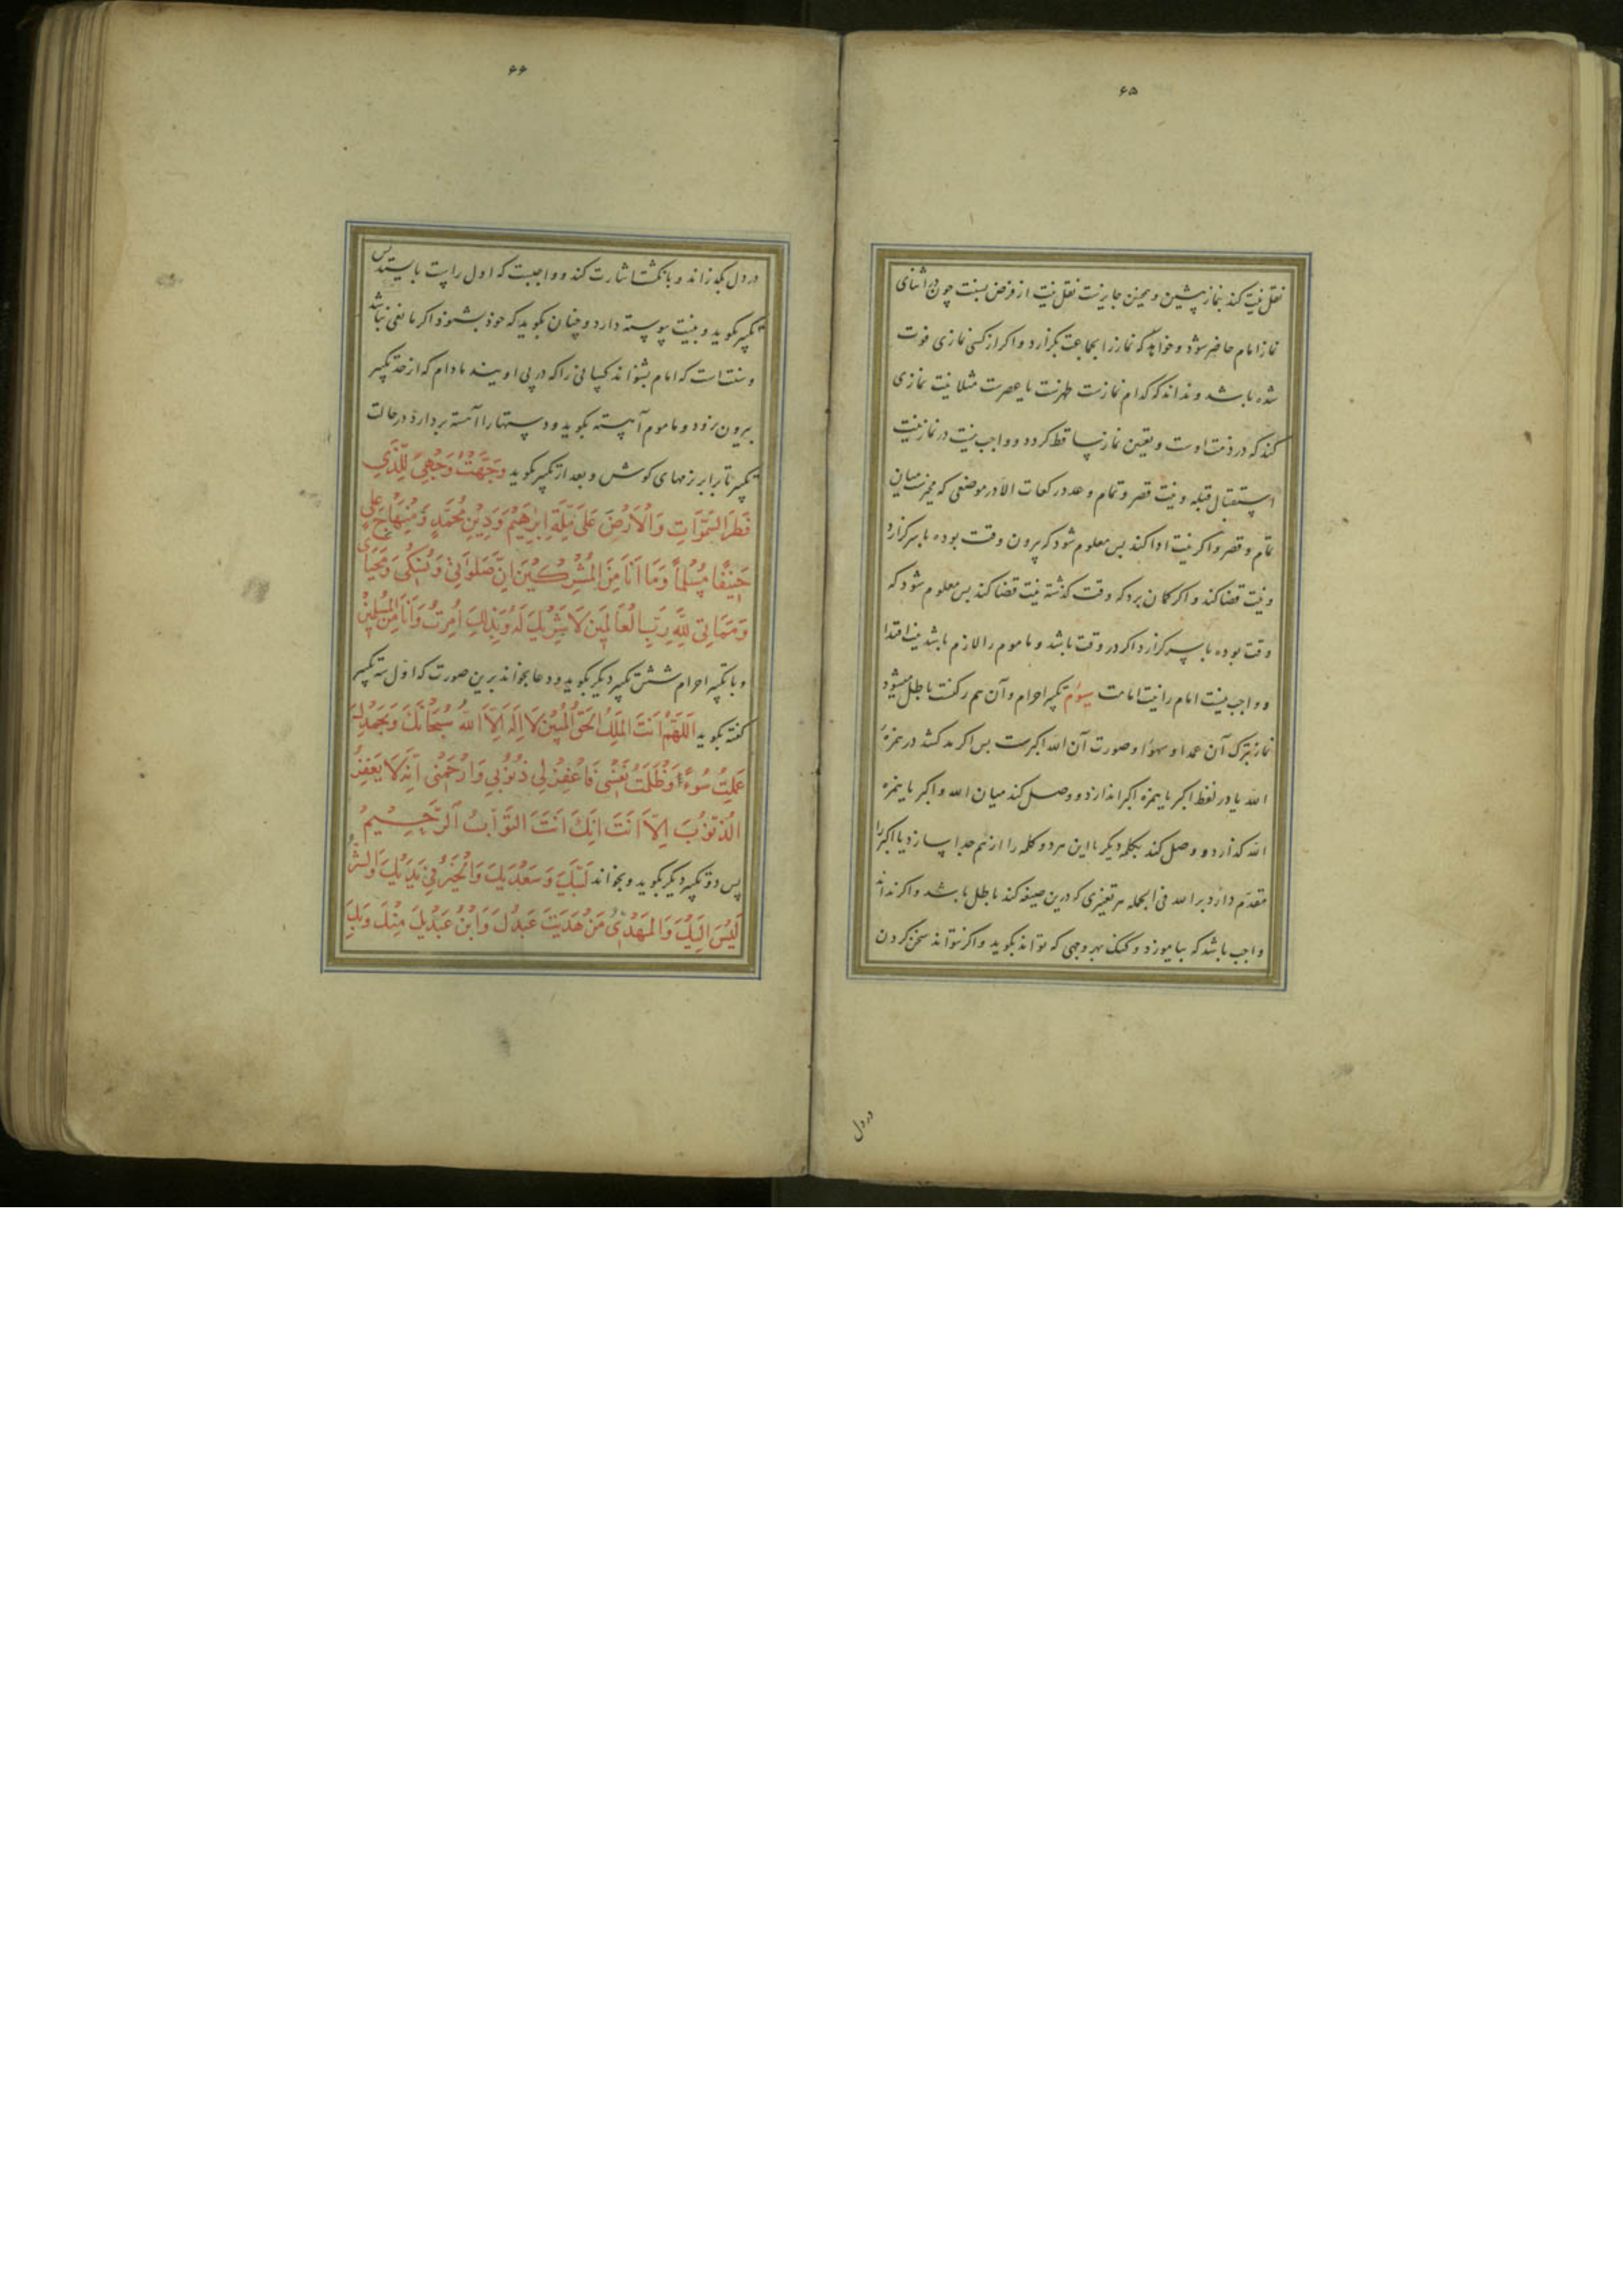 ۶۵
نقل نیت کند بنماز پیشین و همچنین جایزست نقل نیت از فرض بسنت چون در اثنای
نماز امام حاضر شود و خواهد که نماز را بجماعت بگزارد و اگر از کسی نمازی فوت
شده باشد و نداند که کدام نمازست ظهرست یا عصرست مثلا نیت نمازی
کند که در ذمت اوست و تعین نماز ساقط گردد و واجب نیست در نماز نیت
استقبال قبله و نیت قصر و تمام و عدد رکعات الا در موضعی که مخیرست میان
تمام و قصر و اگر نیت ادا کند پس معلوم شود که بیرون وقت بوده باسر گزارد
و نیت قضا کند و اگر گمان برد که وقت گذشته نیت قضا کند پس معلوم شود که
وقت بوده باسر گزارد اگر در وقت باشد و ماموم را لازم باشد نیت اقتدا
و واجب نیست امام را نیت امامت سیوم تکبیر احرام و آن هم رکنست باطل میشود
نماز بترک آن عمدا و سهوا و صورت آن الله اکبرست پس اگر مد کشد در همزهٔ
الله یا در لفظ اکبر یا همزه اکبر اندازد و وصل کند میان الله و اکبر یا همزه
الله گذارد و وصل کند بکلمه دیگر یا این هر دو کلمه را از هم جدا سازد یا اکبر را
مقدم دارد بر الله فی الجمله هر تغییری که درین صیغه کند باطل باشد و اگر نداند
واجب باشد که بیاموزد و گنک بهر وجهی که تواند بگوید و اگر نتواند سخن کردن
در دل
۶۶
در دل بگذراند و بانگشت اشارت کند و واجبست که اول راست بایستد پس
تکبیر بگوید و بنیت پیوسته دارد و چنان بگوید که خود بشنود اگر مانعی نباشد
و سنت است که امام بشنواند کسانی را که در پی اویند مادام که از حد تکبیر
بیرون نرود و ماموم آهسته بگوید و دستها را آهسته بردارد در حالت
تکبیر تا برابر نرمهای گوش و بعد از تکبیر بگوید وَجَّهْتُ وَجْهِیَ لِلَّذِی
فَطَرَ السَّمَوَاتِ وَالْاَرْضَ عَلَی مِلَّةِ اِبْرٰهِیْمَ وَدِیْنِ مُحَمَّدٍ وَمِنْهَاجِ عَلِیٍّ
حَنِیْفًا مُسْلِمًا وَمَا اَنَا مِنَ الْمُشْرِکِیْنَ اِنَّ صَلَوَاتِیْ وَنُسُکِیْ وَمَحْیَایَ
وَمَمَاتِیْ لِلَّهِ رَبِّ الْعَالَمِیْنَ لَا شَرِیْکَ لَهُ وَبِذٰلِکَ اُمِرْتُ وَاَنَا مِنَ الْمُسْلِمِیْنَ
و با تکبیر احرام شش تکبیر دیگر بگوید و دعا بخواند برین صورت که اول سه تکبیر
گفته بگوید اَللَّهُمَّ اَنْتَ الْمَلِکُ الْحَقُّ الْمُبِیْنُ لَا اِلٰهَ اِلَّا اللهُ سُبْحَانَکَ وَبِحَمْدِکَ
عَمِلْتُ سُوْءًا وَظَلَمْتُ نَفْسِیْ فَاغْفِرْ لِیْ ذُنُوْبِیْ وَارْحَمْنِیْ اِنَّهُ لَا یَغْفِرُ
الذُّنُوْبَ اِلَّا اَنْتَ اِنَّکَ اَنْتَ التَّوَّابُ الرَّحِیْمُ
پس دو تکبیر دیگر بگوید و بخواند لَبَّیْکَ وَسَعْدَیْکَ وَالْخَیْرُ فِیْ یَدَیْکَ وَالشَّرُّ
لَیْسَ اِلَیْکَ وَالْمَهْدِیُّ مَنْ هَدَیْتَ عَبْدُکَ وَابْنُ عَبْدَیْکَ مِنْکَ وَبِکَ